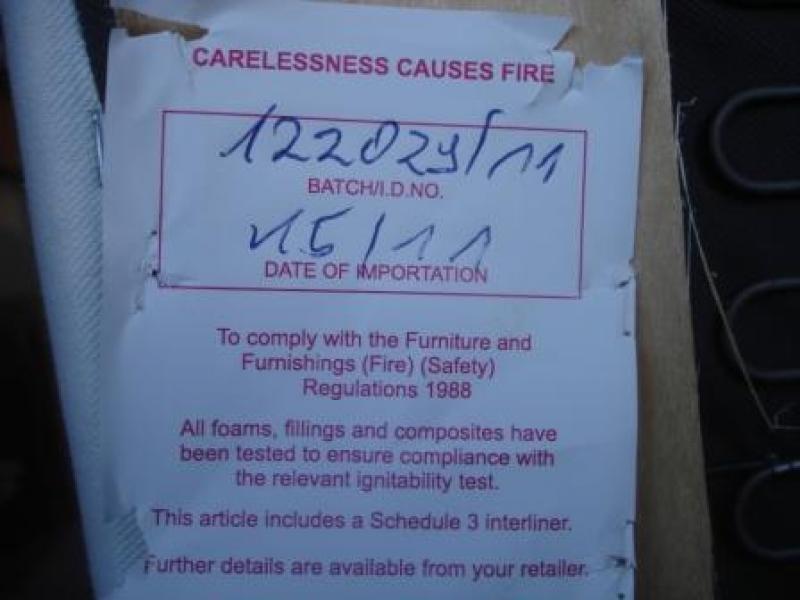 CARELESSNESS CAUSES FIRE
122029/11
BATCH/I.D.NO.
15/11
DATE OF IMPORTATION
To comply with the Furniture and
Furnishings (Fire) (Safety)
Regulations 1988
All foams, fillings and composites have
been tested to ensure compliance with
the relevant ignitability test.
This article includes a Schedule 3 interliner.
Further details are available from your retailer.